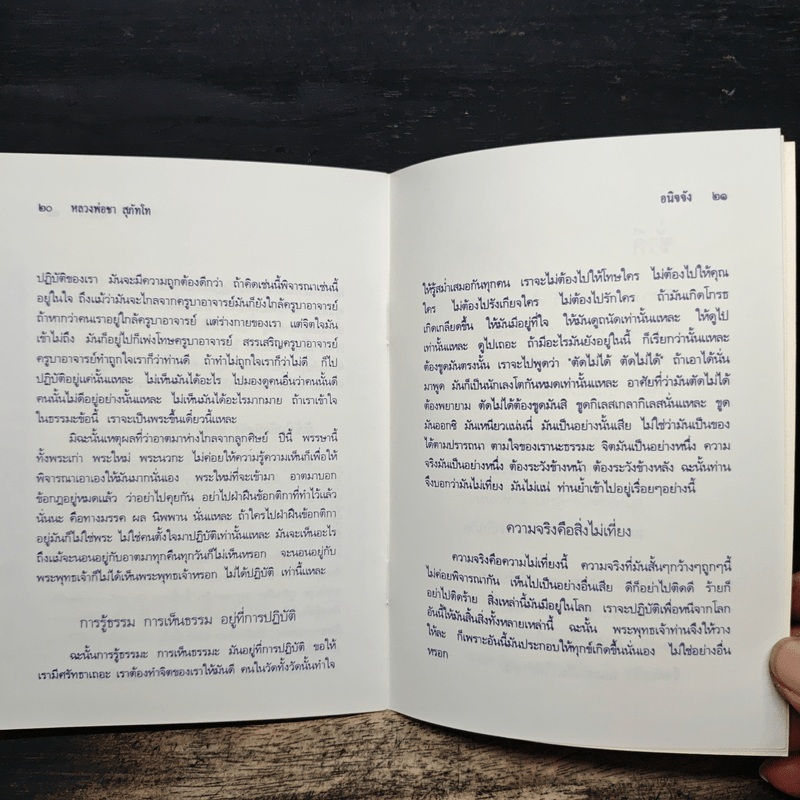 ๒๐ หลวงพ่อชา สุภัทโท
ปฏิบัติของเรา มันจะมีความถูกต้องดีกว่า ถ้าคิดเช่นนี้พิจารณาเช่นนี้
อยู่ในใจ ถึงแม้ว่ามันจะไกลจากครูบาอาจารย์มันก็ยังใกล้ครูบาอาจารย์
ถ้าหากว่าคนเราอยู่ใกล้ครูบาอาจารย์ แต่ร่างกายของเรา แต่จิตใจมัน
เข้าไม่ถึง มันก็อยู่ไปก็เพ่งโทษครูบาอาจารย์ สรรเสริญครูบาอาจารย์
ครูบาอาจารย์ทำถูกใจเราก็ว่าท่านดี ถ้าทำไม่ถูกใจเราก็ว่าไม่ดี ก็ไป
ปฏิบัติอยู่แค่นั้นแหละ ไม่เห็นมันได้อะไร ไปมองดูคนอื่นว่าคนนั้นดี
คนนั้นไม่ดีอยู่อย่างนั้นแหละ ไม่เห็นมันได้อะไรมากมาย ถ้าเราเข้าใจ
ในธรรมะข้อนี้ เราจะเป็นพระขึ้นเดี๋ยวนี้แหละ
มิฉะนั้นเหตุผลที่ว่าอาตมาห่างไกลจากลูกศิษย์ ปีนี้ พรรษานี้
ทั้งพระเก่า พระใหม่ พระนวกะ ไม่ค่อยให้ความรู้ความเห็นก็เพื่อให้
พิจารณาเอาเองให้มันมากนั่นเอง พระใหม่ที่จะเข้ามา อาตมาบอก
ข้อกฎอยู่หมดแล้ว ว่าอย่าไปคุยกัน อย่าไปฝ่าฝืนข้อกติกาที่ทำไว้แล้ว
นั่นนะ คือทางมรรค ผล นิพพาน นั่นแหละ ถ้าใครไปฝ่าฝืนข้อกติกา
อยู่มันก็ไม่ใช่พระ ไม่ใช่คนตั้งใจมาปฏิบัติเท่านั้นแหละ มันจะเห็นอะไร
ถึงแม้จะนอนอยู่กับอาตมาทุกคืนทุกวันก็ไม่เห็นหรอก จะนอนอยู่กับ
พระพุทธเจ้าก็ไม่ได้เห็นพระพุทธเจ้าหรอก ไม่ได้ปฏิบัติ เท่านี้แหละ
การรู้ธรรม การเห็นธรรม อยู่ที่การปฏิบัติ
ฉะนั้นการรู้ธรรมะ การเห็นธรรมะ มันอยู่ที่การปฏิบัติ ขอให้
เรามีศรัทธาเถอะ เราต้องทำจิตของเราให้มันดี คนในวัดทั้งวัดนั้นทำใจ
อนิจจัง ๒๑
ให้รู้สม่ำเสมอกันทุกคน เราจะไม่ต้องไปให้โทษใคร ไม่ต้องไปให้คุณ
ใคร ไม่ต้องไปรังเกียจใคร ไม่ต้องไปรักใคร ถ้ามันเกิดโกรธ
เกิดเกลียดขึ้น ให้มันมีอยู่ที่ใจ ให้มันดูถนัดเท่านั้นแหละ ให้ดูไป
เท่านั้นแหละ ดูไปเถอะ ถ้ามีอะไรมันยังอยู่ในนี้ ก็เรียกว่านั้นแหละ
ต้องขูดมันตรงนั้น เราจะไปพูดว่า "ตัดไม่ได้ ตัดไม่ได้" ถ้าเอาได้นั่น
มาพูด มันก็เป็นนักเลงโตกันหมดเท่านั้นแหละ อาศัยที่ว่ามันตัดไม่ได้
ต้องพยายาม ตัดไม่ได้ต้องขูดมันสิ ขูดกิเลสเกลากิเลสนั่นแหละ ขูด
มันออกซิ มันเหนียวแน่นนี่ มันเป็นอย่างนั้นเสีย ไม่ใช่ว่ามันเป็นของ
ได้ตามปรารถนา ตามใจของเรานะธรรมะ จิตมันเป็นอย่างหนึ่ง ความ
จริงมันเป็นอย่างหนึ่ง ต้องระวังข้างหน้า ต้องระวังข้างหลัง ฉะนั้นท่าน
จึงบอกว่ามันไม่เที่ยง มันไม่แน่ ท่านย้ำเข้าไปอยู่เรื่อยๆอย่างนี้
ความจริงคือสิ่งไม่เที่ยง
ความจริงคือความไม่เที่ยงนี้ ความจริงที่มันสั้นๆกว้างๆถูกๆนี้
ไม่ค่อยพิจารณากัน เห็นไปเป็นอย่างอื่นเสีย ดีก็อย่าไปติดดี ร้ายก็
อย่าไปติดร้าย สิ่งเหล่านี้มันมีอยู่ในโลก เราจะปฏิบัติเพื่อหนีจากโลก
อันนี้ให้มันสิ้นสิ่งทั้งหลายเหล่านี้ ฉะนั้น พระพุทธเจ้าท่านจึงให้วาง
ให้ละ ก็เพราะอันนี้มันประกอบให้ทุกข์เกิดขึ้นนั่นเอง ไม่ใช่อย่างอื่น
หรอก